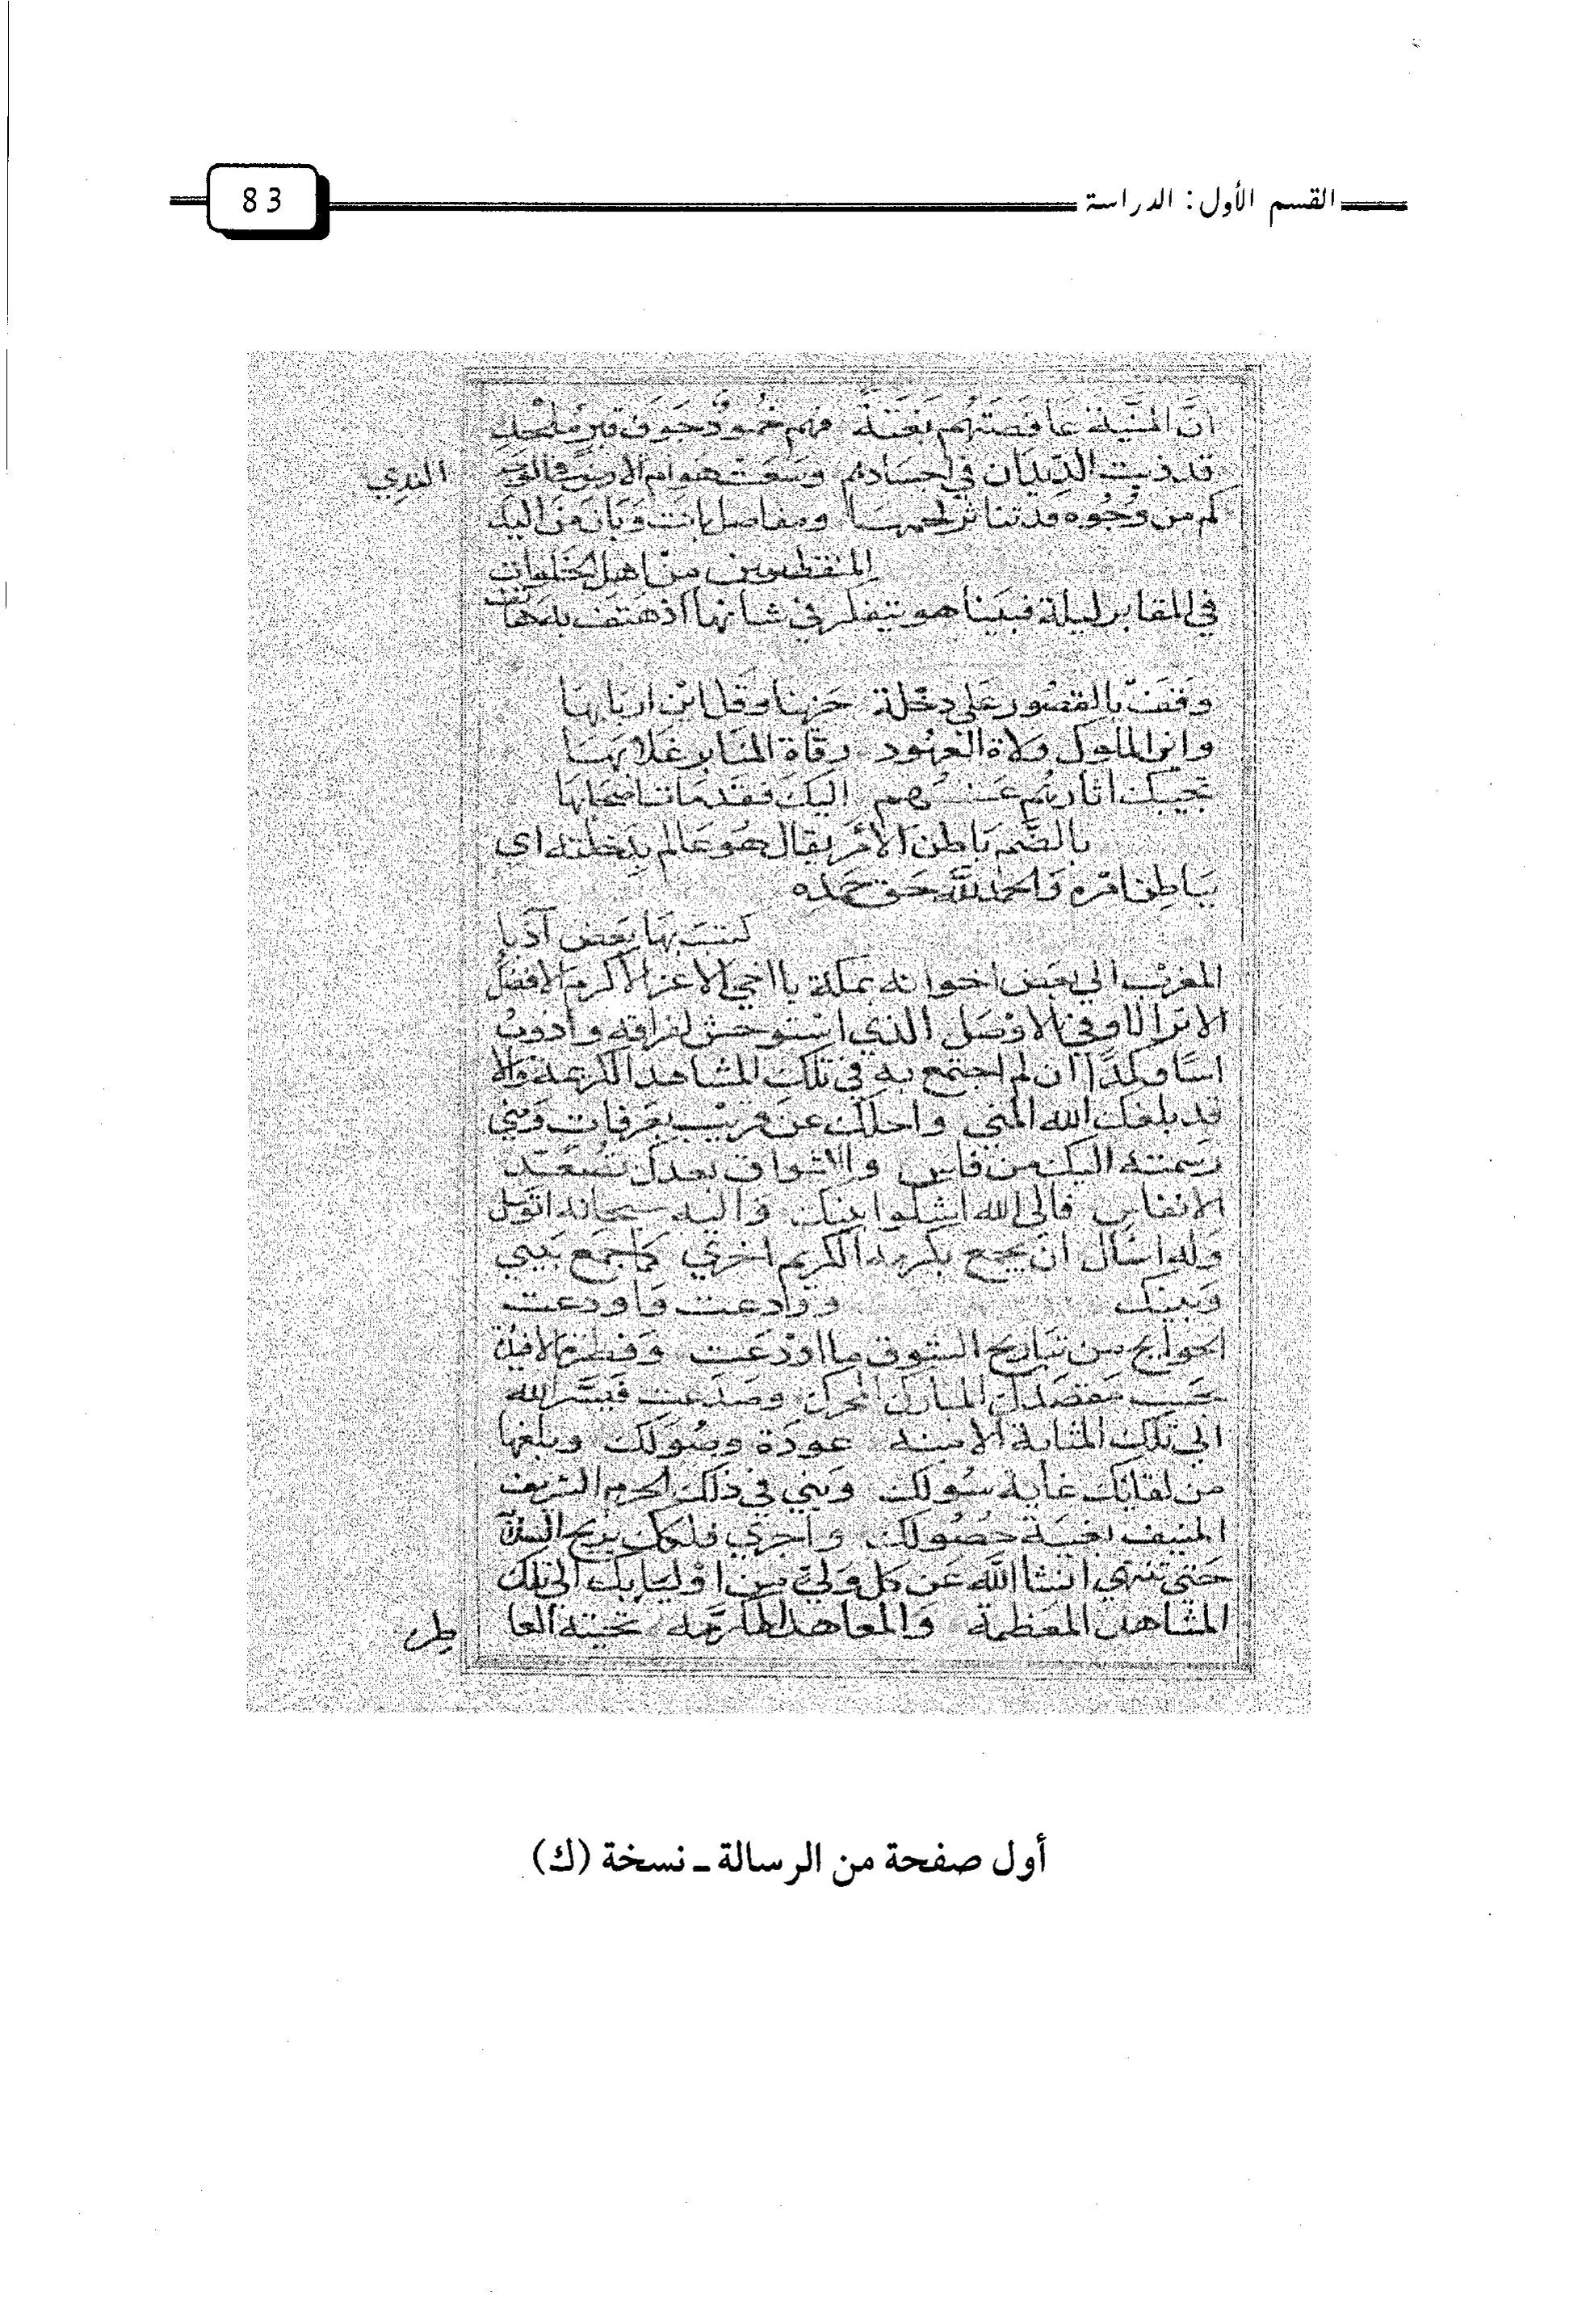 القسم الأول: الدراسة
83
ان المنية عافصتهم بغتة فهم خمود جوف قبر ملحد
قد ذبت الديدان في اجسادهم وسعت هوام الارض في
الندي
كم من وجوه قد تناثر لحمها ومفاصل بانت وبان عن اليد
المنقطعين من اهل الخلوات
في المقابر ليلة فبينا هو يتفكر في شانها اذ هتف به هاتف
وقفت بالقصور على دخلة حزينا وقل اين اربابها
واين الملوك ولاة العهود رقاة المنابر غلابها
تجيبك اثارهم عنهم اليك فقد مات اصحابها
بالضم باطن الأمر يقال هو عالم بدخلته اي
بباطن امره والحمد لله حق حمده
كتب بها بعض آدبا
المغرب الى بعض اخوانه بمكة يا اخي الاعز الاكرم الافضل
الابر الاوفي الاوصل الذي استوحش لفراقه واذوب
اسا وكمدا ان لم اجتمع به في تلك المشاهد الكريمة والا
قد بلغك الله المنى واحلك عن قريب بعرفات ومنى
رسمته اليك من فاس والاشواق بعدك تصعد
الانفاس فالى الله اشكوا بينك واليه سبحانه اتوسل
وله اسأل ان يجمع بكرمه الكريم اخرى كما جمع بيني
وبينك ووادعت واودعت
الجوانح من تباريح الشوق ما اودعت وفطرت الافيدة
حسب مقصدك المبارك المحرك وصدعت فيسر الله
الى تلك المثابة الامينة عودة وصولك وبلغها
من لقائك غاية سولك وبنى في ذلك الحرم الشريف
المنيف حصولك واجرى فلكك بريح السلامة
حتى تنهي انشا الله عن كل ولي من اوليايك الى تلك
المشاهد المعظمة والمعاهد المكرمة تحيته العا
طره
أول صفحة من الرسالة ـ نسخة (ك)